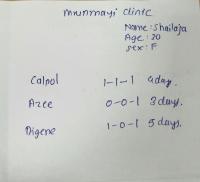 Mrunmayi Clinic
Name : Shailaja
Age : 20
Sex : F
Calpol 1-1-1 4 day.
Azee 0-0-1 3 days.
Digene 1-0-1 5 days.